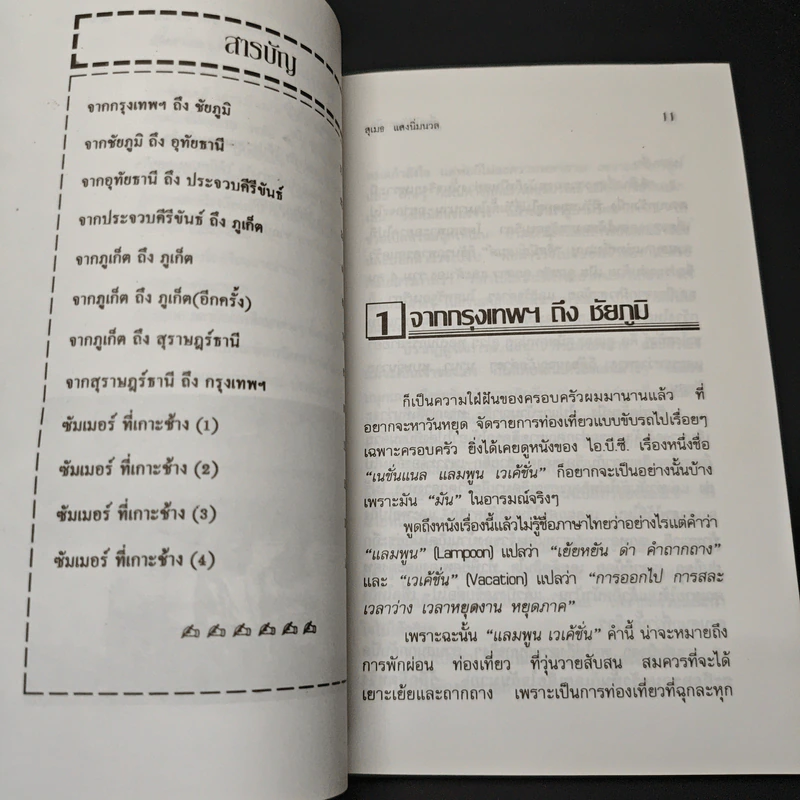 สารบัญ
จากกรุงเทพฯ ถึง ชัยภูมิ
จากชัยภูมิ ถึง อุทัยธานี
จากอุทัยธานี ถึง ประจวบคีรีขันธ์
จากประจวบคีรีขันธ์ ถึง ภูเก็ต
จากภูเก็ต ถึง ภูเก็ต
จากภูเก็ต ถึง ภูเก็ต(อีกครั้ง)
จากภูเก็ต ถึง สุราษฎร์ธานี
จากสุราษฎร์ธานี ถึง กรุงเทพฯ
ซัมเมอร์ ที่เกาะช้าง (1)
ซัมเมอร์ ที่เกาะช้าง (2)
ซัมเมอร์ ที่เกาะช้าง (3)
ซัมเมอร์ ที่เกาะช้าง (4)
สุเมธ แสงนิ่มนวล 11
1 จากกรุงเทพฯ ถึง ชัยภูมิ
ก็เป็นความใฝ่ฝันของครอบครัวผมมานานแล้ว ที่
อยากจะหาวันหยุด จัดรายการท่องเที่ยวแบบขับรถไปเรื่อยๆ
เฉพาะครอบครัว ยิ่งได้เคยดูหนังของ ไอ.บี.ซี. เรื่องหนึ่งชื่อ
“เนชั่นแนล แลมพูน เวเค้ชั่น” ก็อยากจะเป็นอย่างนั้นบ้าง
เพราะมัน “มัน” ในอารมณ์จริงๆ
พูดถึงหนังเรื่องนี้แล้วไม่รู้ชื่อภาษาไทยว่าอย่างไรแต่คำว่า
“แลมพูน” (Lampoon) แปลว่า “เย้ยหยัน ด่า คำถากถาง”
และ “เวเค้ชั่น” (Vacation) แปลว่า “การออกไป การสละ
เวลาว่าง เวลาหยุดงาน หยุดภาค”
เพราะฉะนั้น “แลมพูน เวเค้ชั่น” คำนี้ น่าจะหมายถึง
การพักผ่อน ท่องเที่ยว ที่วุ่นวายสับสน สมควรที่จะได้
เยาะเย้ยและถากถาง เพราะเป็นการท่องเที่ยวที่ฉุกละหุก